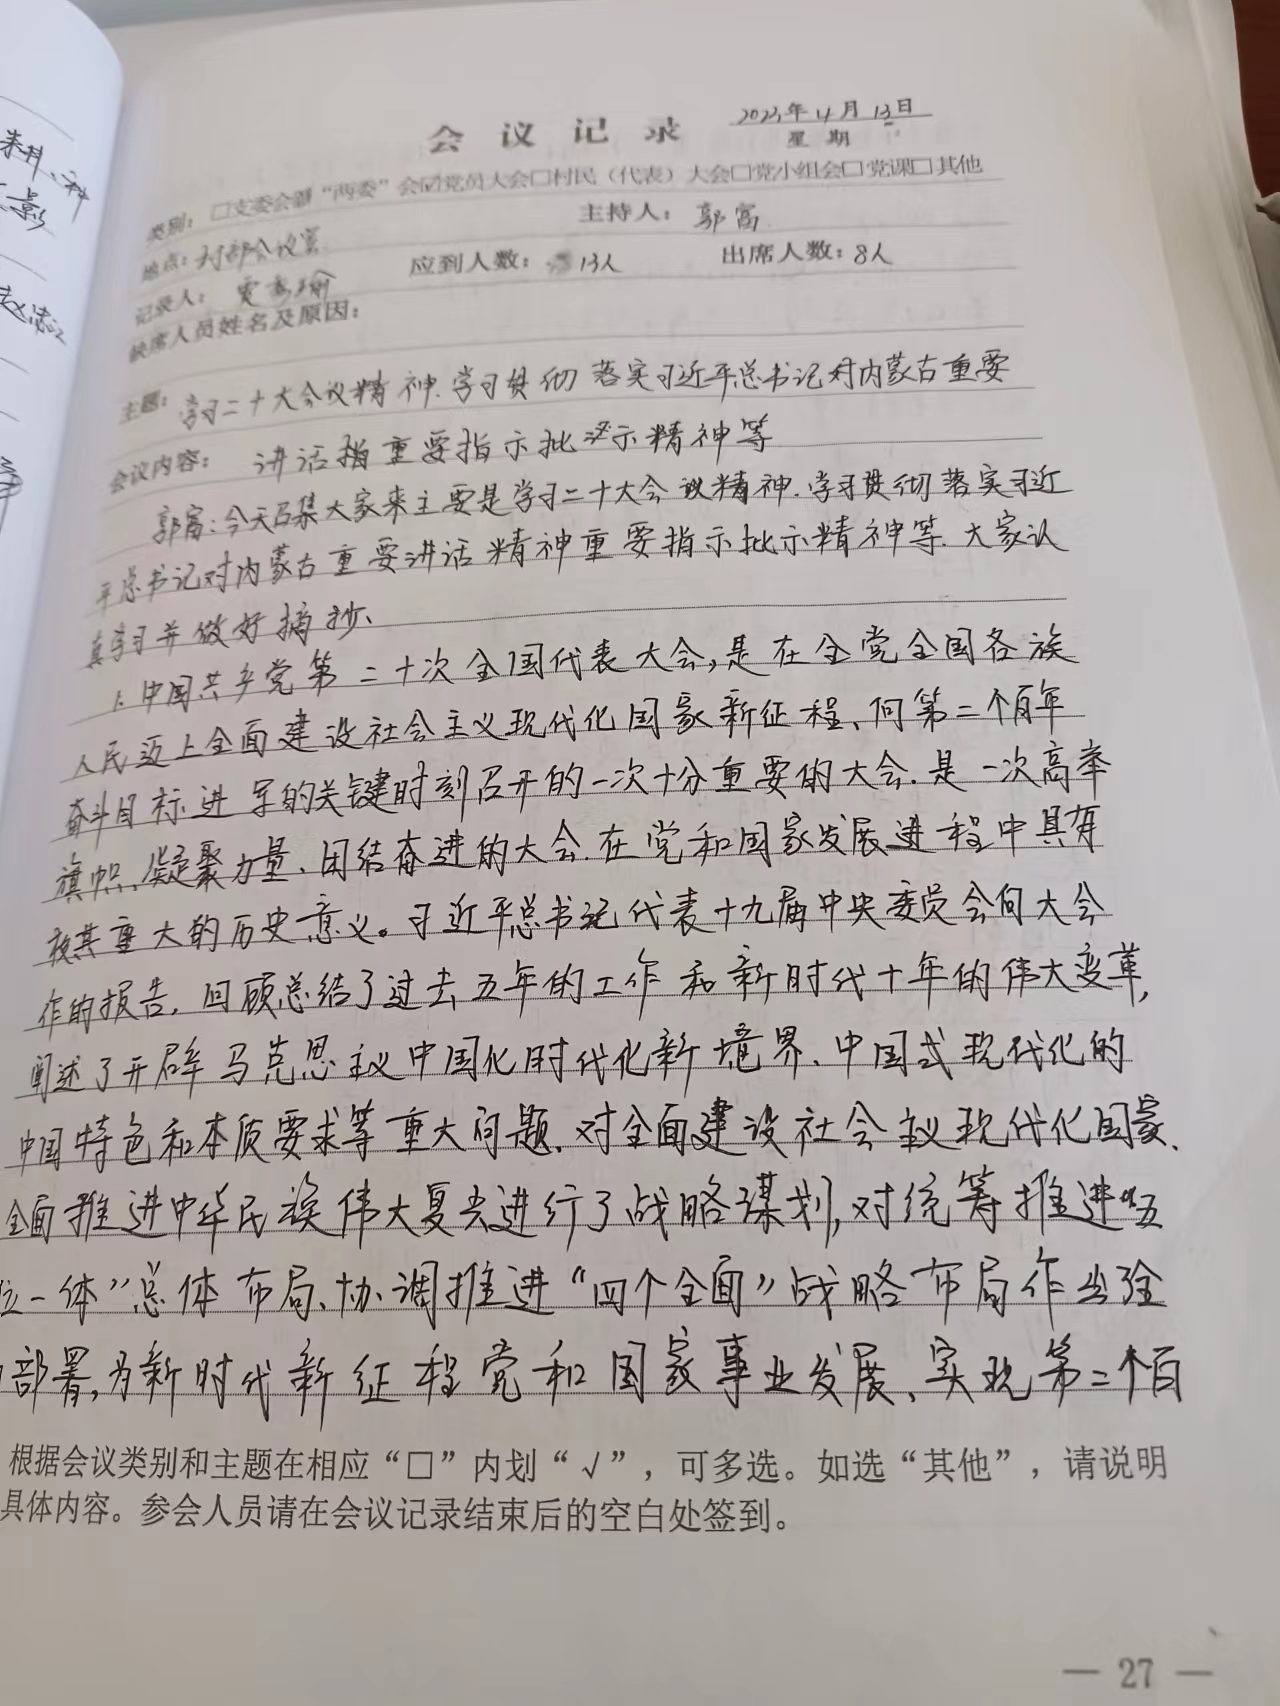 朱科、
会议记录 2023年4月13日
星期
类别：□支委会☑“两委”会☑党员大会□村民（代表）大会□党小组会□党课□其他
地点：村部会议室 主持人：郭富
记录人： 应到人数：13人 出席人数：8人
缺席人员姓名及原因：
主题：学习二十大会议精神.学习贯彻落实习近平总书记对内蒙古重要
会议内容：讲话指重要指示批示精神等
郭富：今天召集大家来主要是学习二十大会议精神.学习贯彻落实习近
平总书记对内蒙古重要讲话精神重要指示批示精神等.大家认
真学习并做好摘抄、
1.中国共产党第二十次全国代表大会,是在全党全国各族
人民迈上全面建设社会主义现代化国家新征程、向第二个百年
奋斗目标进军的关键时刻召开的一次十分重要的大会.是一次高举
旗帜、凝聚力量、团结奋进的大会.在党和国家发展进程中具有
极其重大的历史意义。习近平总书记代表十九届中央委员会向大会
作的报告,回顾总结了过去五年的工作和新时代十年的伟大变革,
阐述了开辟马克思主义中国化时代化新境界、中国式现代化的
中国特色和本质要求等重大问题.对全面建设社会主义现代化国家、
全面推进中华民族伟大复兴进行了战略谋划,对统筹推进“五
位一体”总体布局、协调推进“四个全面”战略布局作出全
部署,为新时代新征程党和国家事业发展、实现第二个百
根据会议类别和主题在相应“□”内划“√”，可多选。如选“其他”，请说明
具体内容。参会人员请在会议记录结束后的空白处签到。
— 27 —